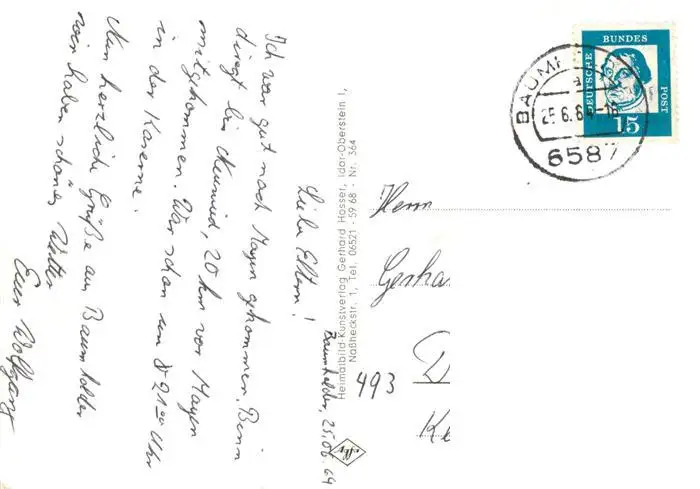 Baumholder, 25.06.64
Liebe Eltern!
Ich war gut nach Mayen gekommen. Bin
direkt bis Neuwied, 20 km vor Mayen
mitgekommen. War schon um 21⁰⁰ Uhr
in der Kaserne.
Nun herzliche Grüße aus Baumholder
wir haben schönes Wetter
Euer Wolfgang
Heimatbild-Kunstverlag Gerhard Hosser, Idar-Oberstein 1,
Naßheckstr. 1, Tel. 06521 - 59 68 - Nr. 364
DEUTSCHE
BUNDES
POST
15
BAUMH
25.6.64
6587
Herrn
Gerha
493
D
Ke